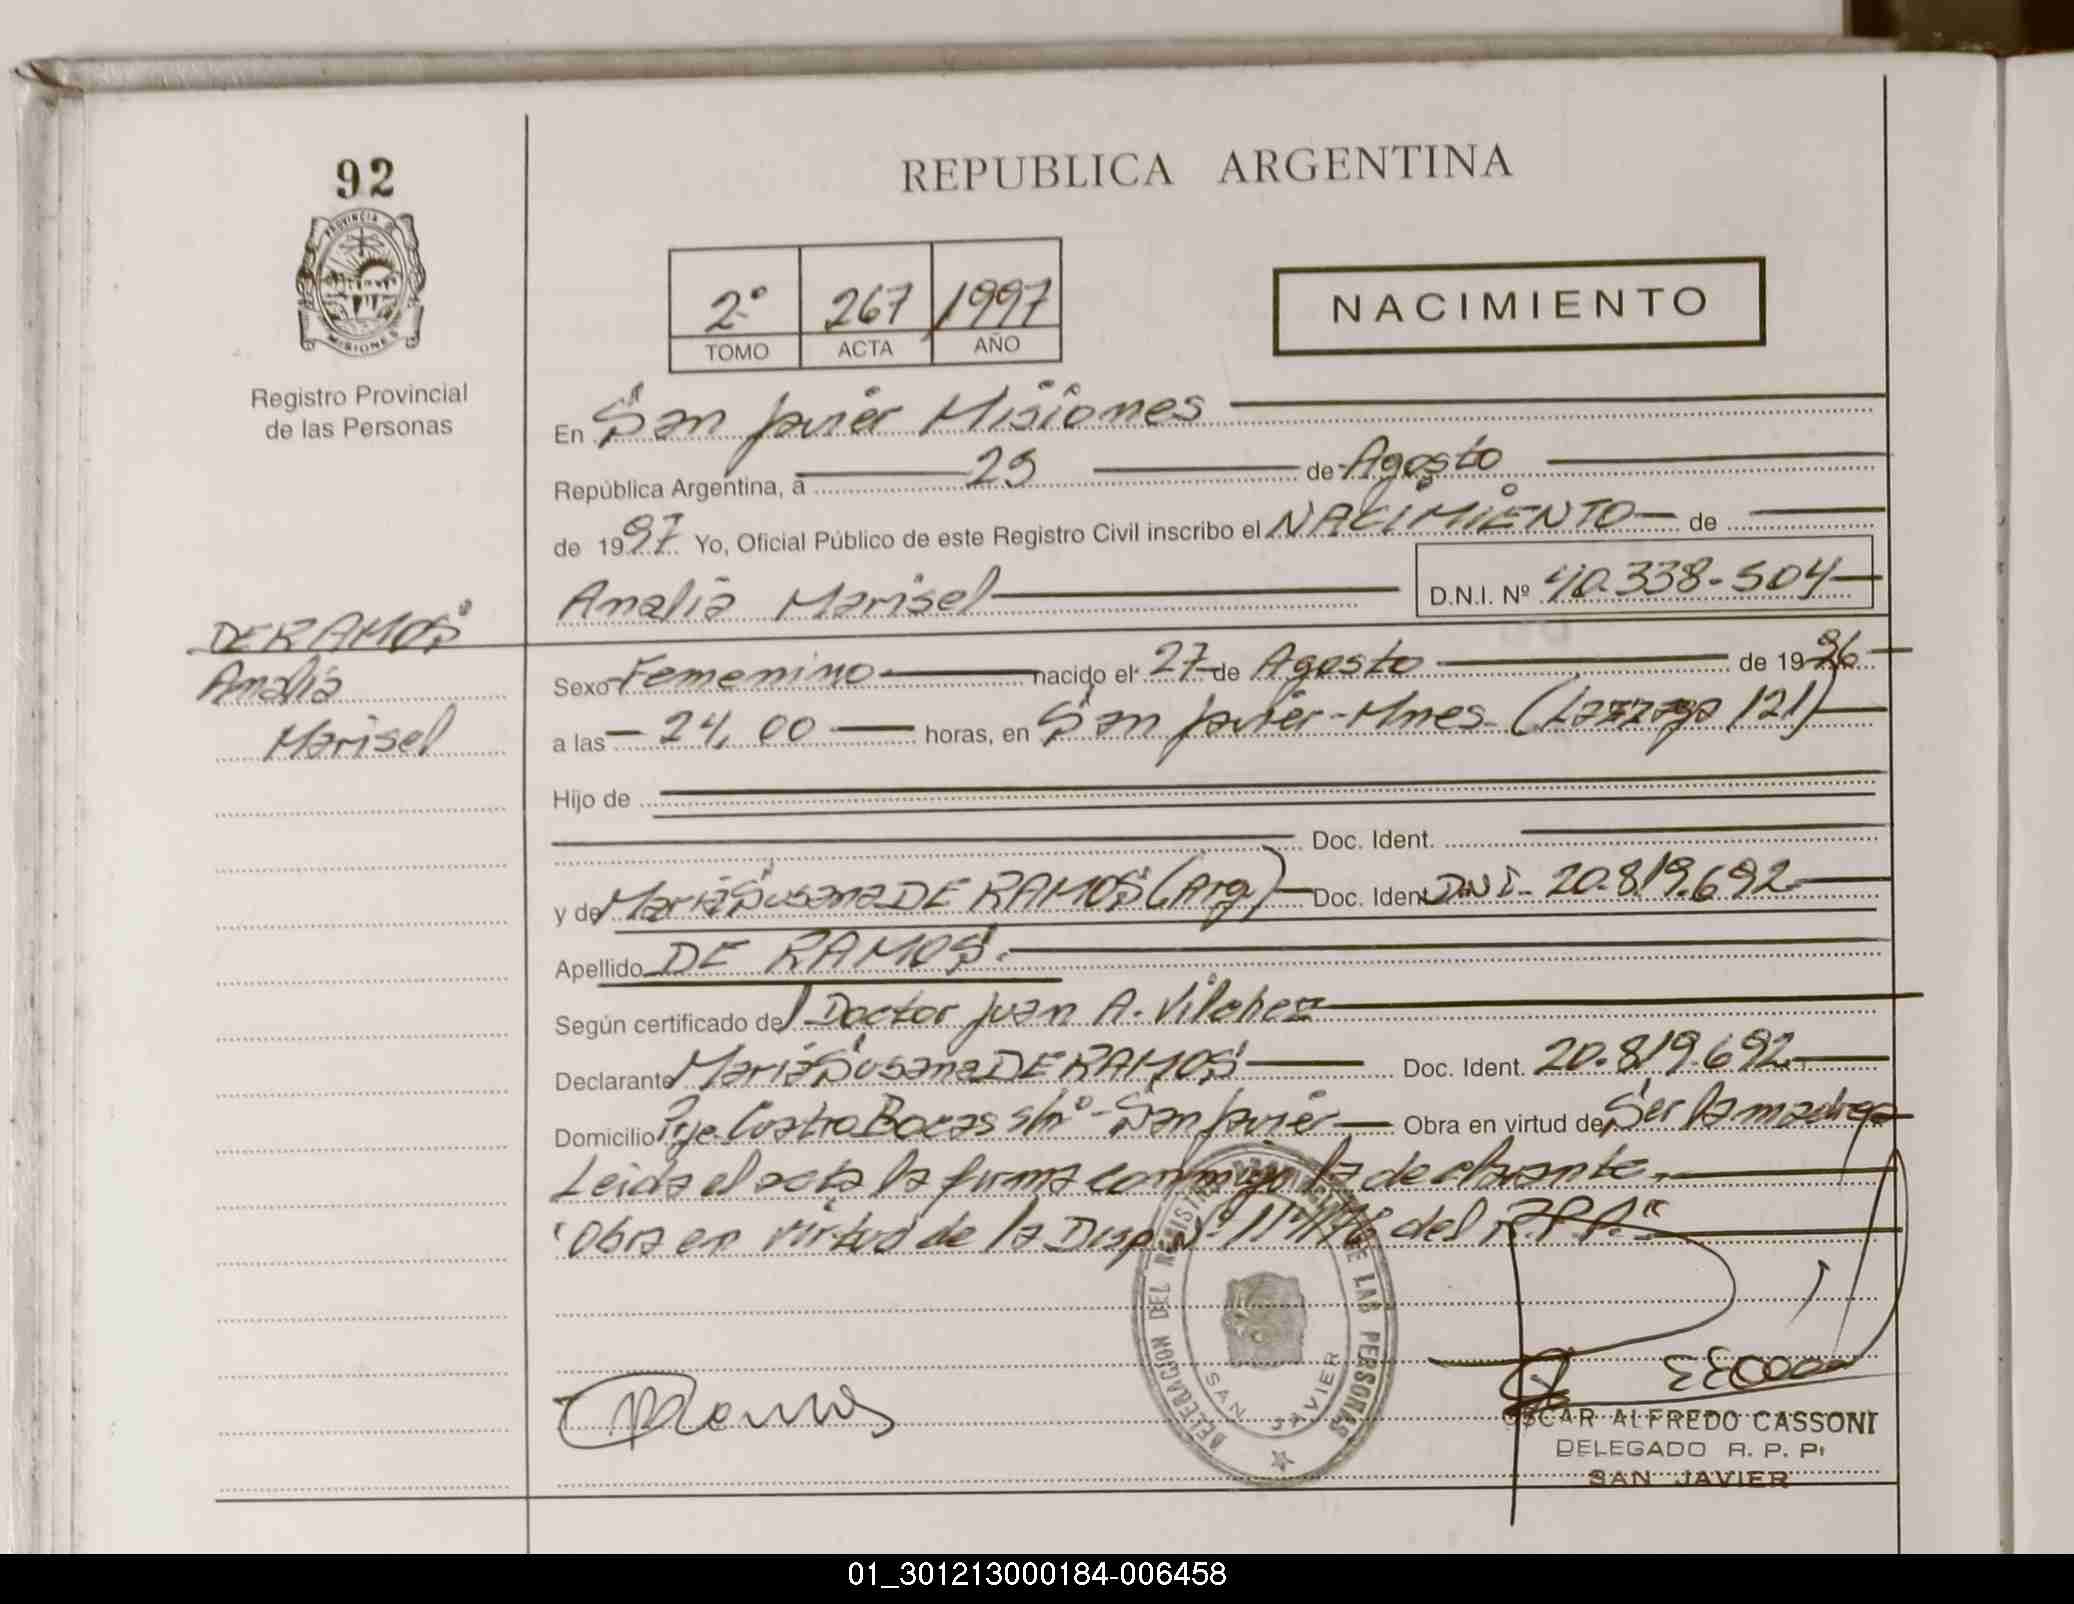 92
PROVINCIA DE
MISIONES
Registro Provincial
de las Personas
REPUBLICA ARGENTINA
2º 267 1997
TOMO ACTA AÑO
NACIMIENTO
En San Javier Misiones
República Argentina, a 25 de Agosto
de 1997. Yo, Oficial Público de este Registro Civil inscribo el NACIMIENTO de
Analia Marisel D.N.I. Nº 40.338-504
DE RAMOS
Analia
Marisel
Sexo Femenino nacido el 27 de Agosto de 1996
a las 24,00 horas, en San Javier-Mnes. (Lazzaga 121)
Hijo de
Doc. Ident.
y de Maria Susana DE RAMOS (Arg.) Doc. Ident. DNI- 20.819.692
Apellido DE RAMOS.
Según certificado del Doctor Juan A. Vilchez
Declarante Maria Susana DE RAMOS Doc. Ident. 20.819.692
Domicilio Pje. Cuatro Bocas s/nº - San Javier Obra en virtud de Ser la madre
Leida el acta la firma conmigo la declarante.
"Obra en virtud de la Disp. Nº 114/96 del R.P.P."
DELEGACION DEL REGISTRO DE LAS PERSONAS
SAN JAVIER
Ramos
OSCAR ALFREDO CASSONI
DELEGADO R. P. P.
SAN JAVIER
01_301213000184-006458